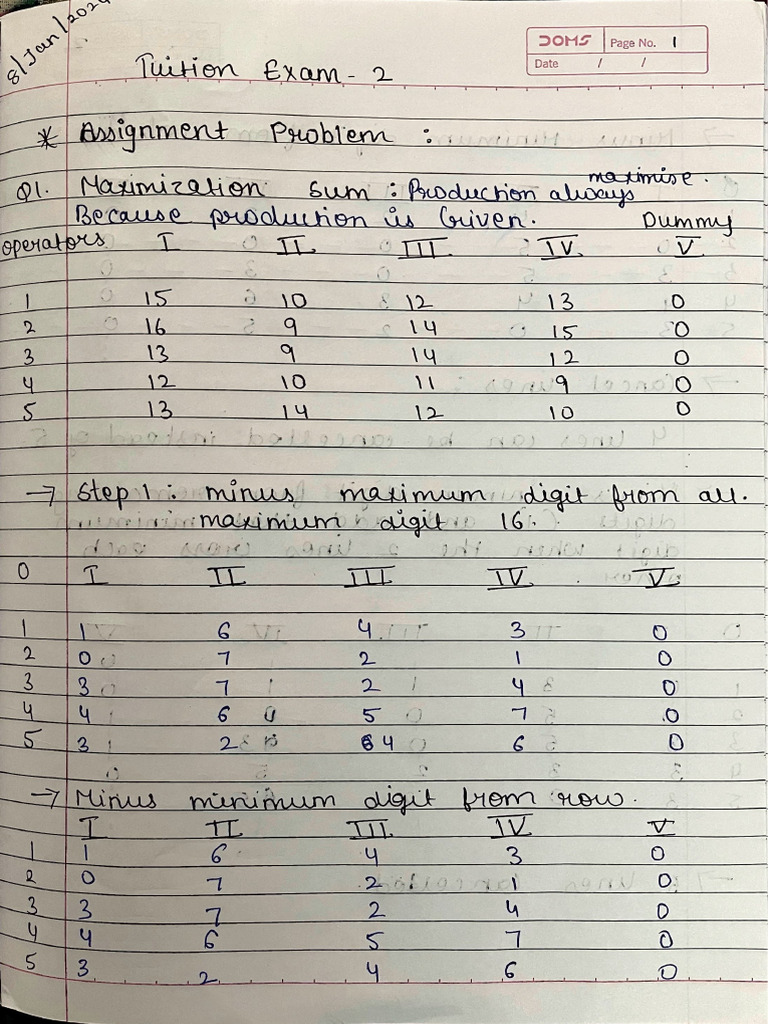 8/Jan/2024
DOMS Page No. 1
Date / /
Tuition Exam - 2
* Assignment Problem :
Q1. Maximization sum : Production always maximise.
Because production is Given. Dummy
operators I II III IV V
1 15 10 12 13 0
2 16 9 14 15 0
3 13 9 14 12 0
4 12 10 11 9 0
5 13 14 12 10 0
→ Step 1 : minus maximum digit from all.
maximum digit 16.
0 I II III IV V
1 1 6 4 3 0
2 0 7 2 1 0
3 3 7 2 4 0
4 4 6 5 7 0
5 3 2 4 6 0
→ Minus minimum digit from row.
I II III IV V
1 1 6 4 3 0
2 0 7 2 1 0
3 3 7 2 4 0
4 4 6 5 7 0
5 3 2 4 6 0